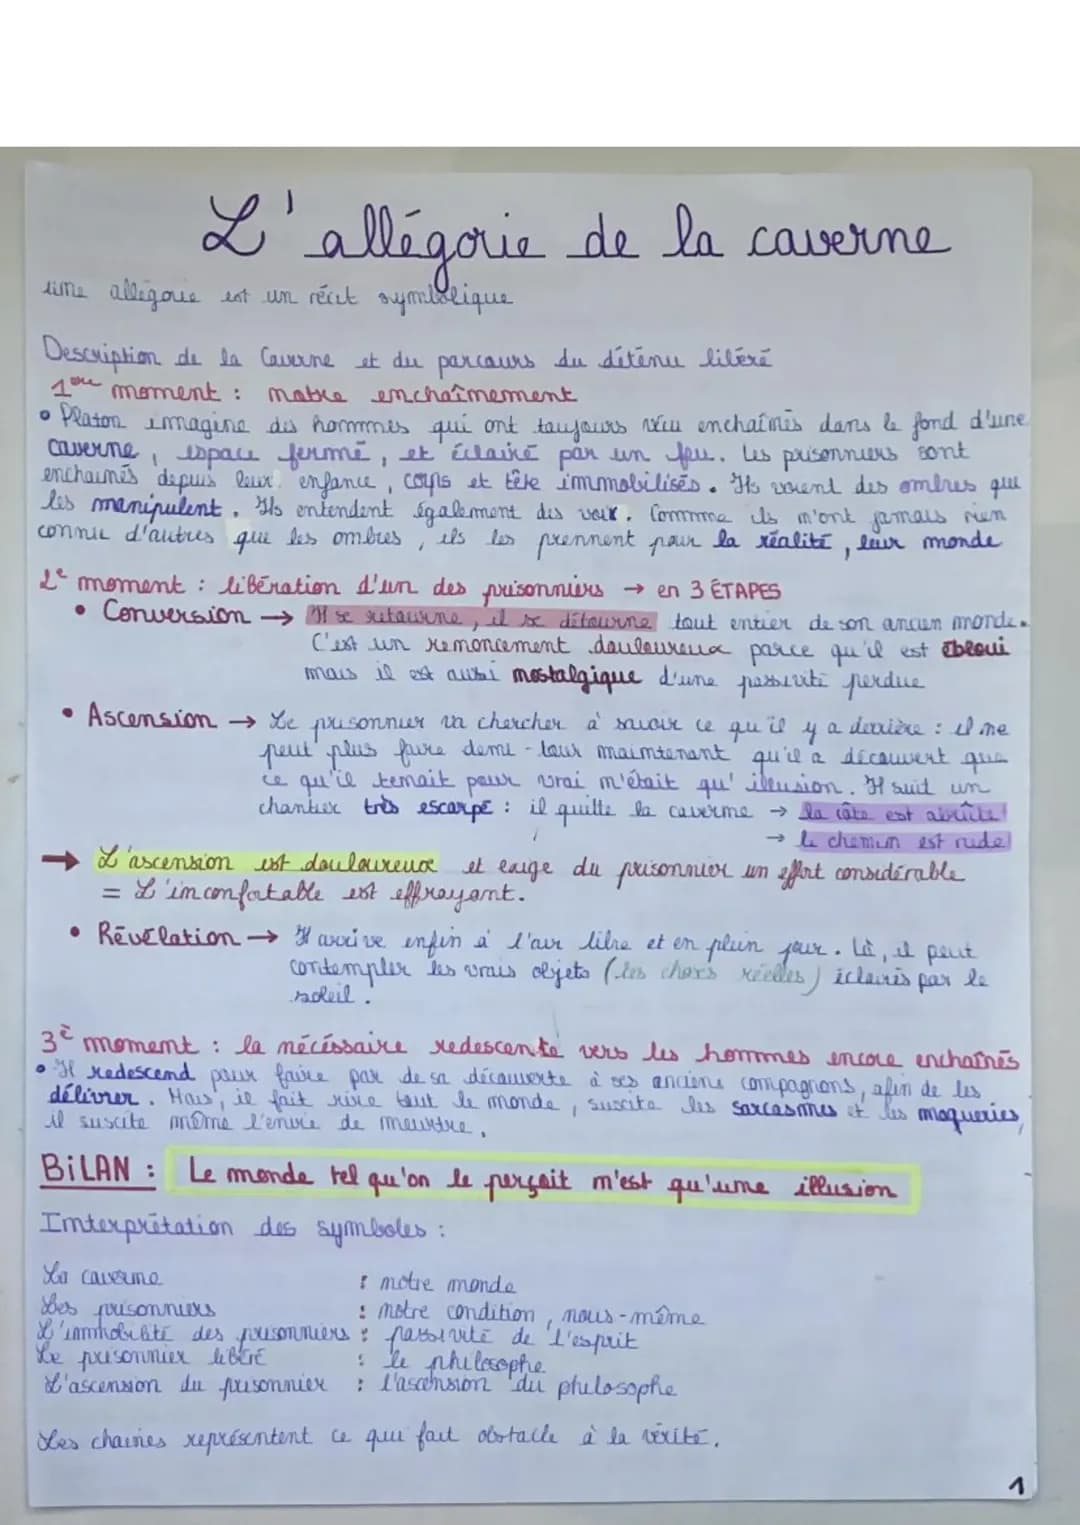 L'allégorie de la caverne
une allégorie est un récit symbolique
Description de la Caverne et du parcours du déténu libéré
1er moment : notre enchaînement
• Platon imagine des hommes qui ont toujours vécu enchaînés dans le fond d'une
caverne, espace fermé, et éclairé par un feu. Les prisonniers sont
enchainés depuis leur enfance, corps et tête immobilisés. Ils voient des ombres qui
les manipulent. Ils entendent également des voix. Comme ils n'ont jamais rien
connu d'autres que les ombres, ils les prennent pour la réalité, leur monde
2e moment : libération d'un des prisonniers → en 3 ÉTAPES
• Conversion → Il se retourne, il se détourne tout entier de son ancien monde.
C'est un renoncement douloureux parce qu'il est ébloui
mais il est aussi nostalgique d'une passivité perdue
• Ascension → Le prisonnier va chercher à savoir ce qu'il y a derrière : il ne
peut plus faire demi-tour maintenant qu'il a découvert que
ce qu'il tenait pour vrai n'était qu'illusion. Il suit un
chantier très escarpé : il quitte la caverne → la côte est abrûte
→ le chemin est rude
→ L'ascension est douloureuse et exige du prisonnier un effort considérable
= L'inconfortable est effrayant.
• Révélation → Il arrive enfin à l'air libre et en plein jour. Là, il peut
contempler les vrais objets (les choses réelles) éclairés par le
soleil.
3è moment : la nécéssaire redescente vers les hommes encore enchaînés
• Il redescend pour faire par de sa découverte à ses anciens compagnons, afin de les
délivrer. Mais, il fait rire tout le monde, suscite les sarcasmes et les moqueries,
il suscite même l'envie de meurtre.
BiLAN : Le monde tel qu'on le perçoit n'est qu'une illusion
Interprétation des symboles :
La caverne : notre monde
Les prisonniers : notre condition, nous-même
L'immobilité des prisonniers : passivité de l'esprit
Le prisonnier libéré : le philosophe
L'ascension du prisonnier : l'ascension du philosophe
Les chaines représentent ce qui fait obstacle à la vérité.
1